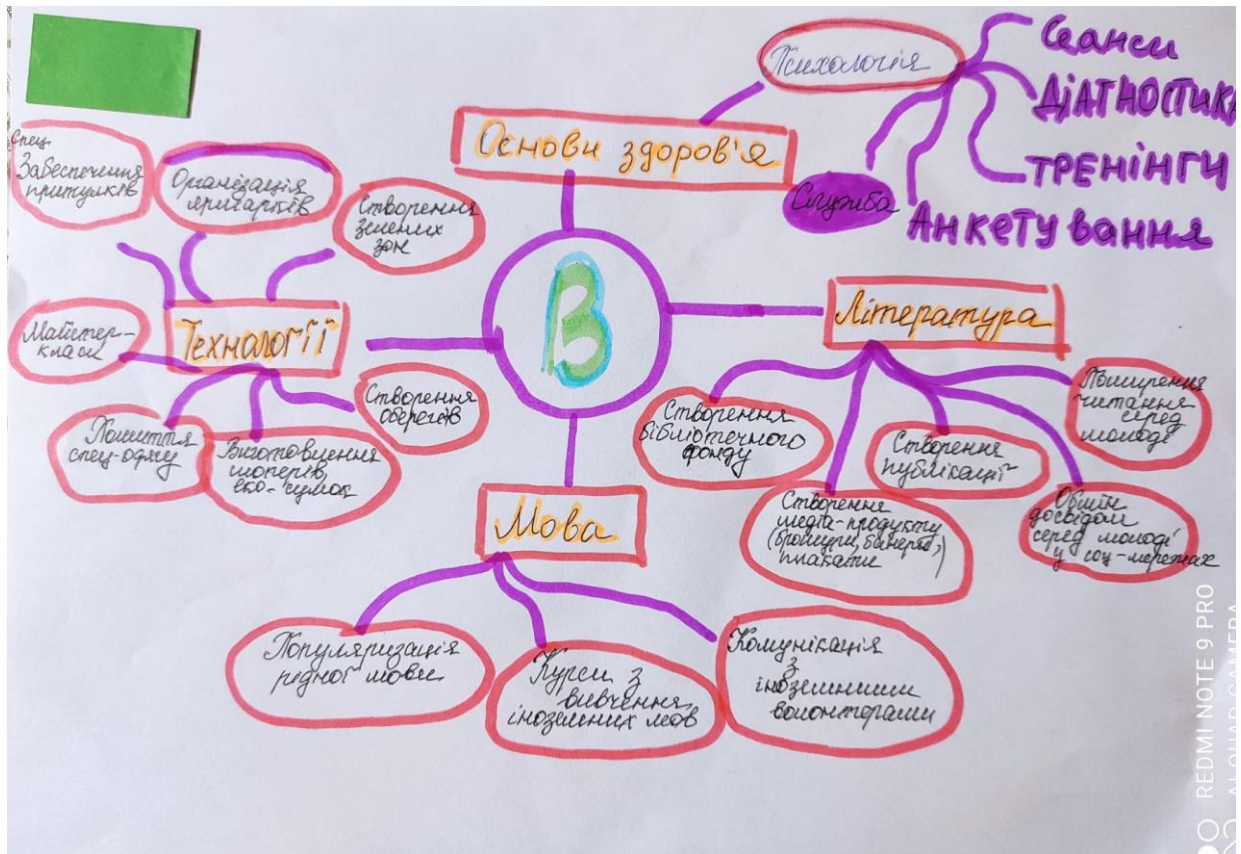 Психологія
Сеанси
ДІАГНОСТИКА
ТРЕНІНГИ
Анкетування
Служба
Основи здоров'я
спец.
Забеспечення
притулків
Організація
ярмарків
Створення
зелених
зон
В
Технології
Майстер-
класи
Пошиття
спец-одягу
Виготовлення
шоперів,
еко-сумок
Створення
оберегів
Література
Створення
бібліотечного
фонду
Створення
медіа-продукту
(брошури, банери,
плакати)
Створення
публікації
Поширення
читання
серед
молоді
Обмін
досвідом
серед молоді
у соц-мережах
Мова
Популяризація
рідної мови
Курси з
вивчення
іноземних мов
Комунікація
з
іноземними
волонтерами
REDMI NOTE 9 PRO
AI QUAD CAMERA